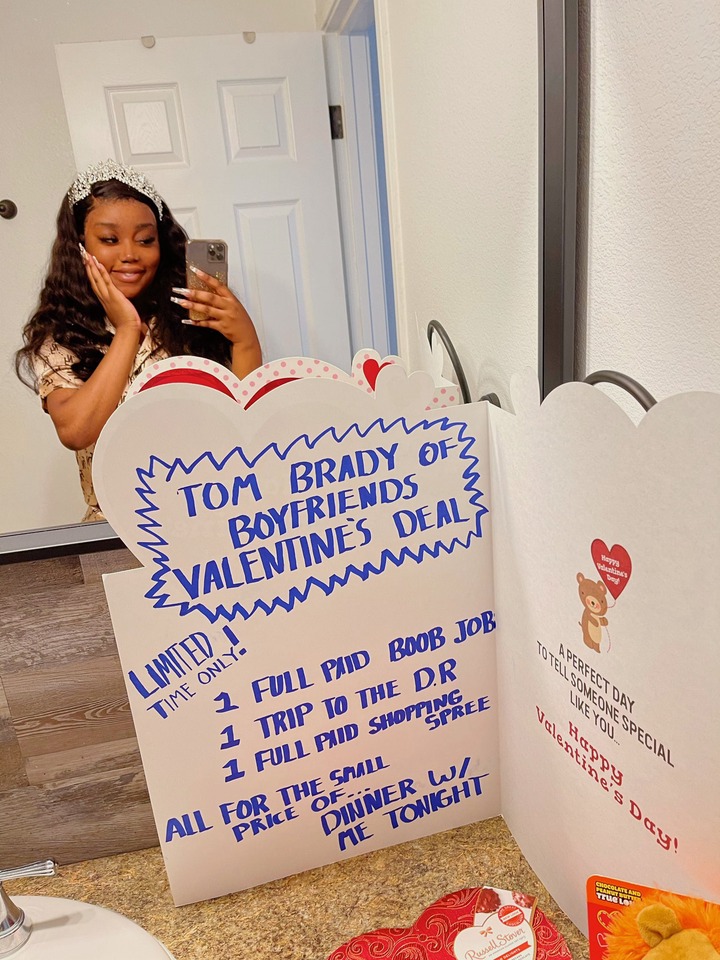 TOM BRADY OF
BOYFRIENDS
VALENTINE'S DEAL
LIMITED!
TIME ONLY!
1 FULL PAID BOOB JOB
1 TRIP TO THE D.R
1 FULL PAID SHOPPING
SPREE
ALL FOR THE SMALL
PRICE OF...
DINNER W/
ME TONIGHT
Happy
Valentine's
Day!
A PERFECT DAY
TO TELL SOMEONE SPECIAL
LIKE YOU...
Happy
Valentine's Day!
Russell Stover
CHOCOLATE AND
PEANUT BUTTER
TRUE